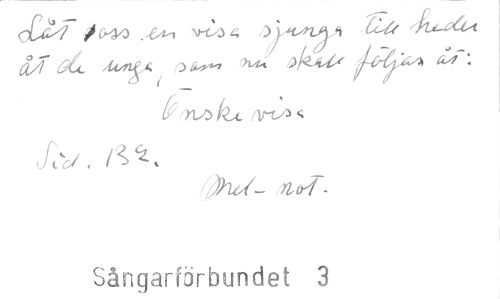 Låt oss en visa sjunga till heder
åt de unga, som nu skall följas åt:
Önskevisa
Sid. 132.
Mel-not.
Sångarförbundet 3